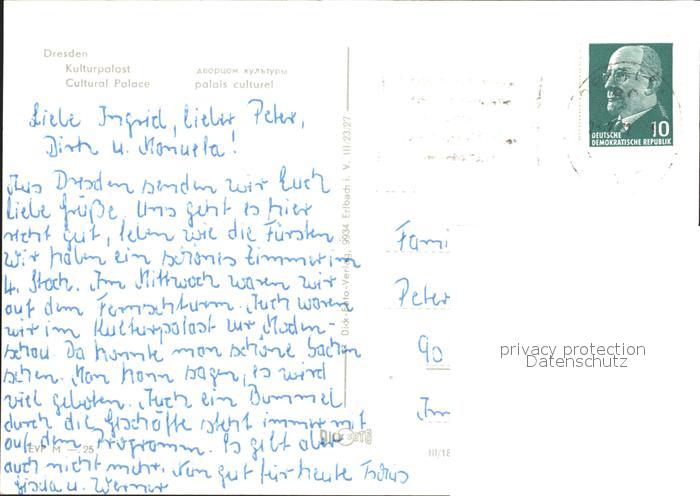 Dresden
Kulturpalast
дворцом культуры
Cultural Palace
palais culturel
Liebe Ingrid, lieber Peter,
Dirk u. Manuela!
Aus Dresden senden wir Euch
liebe Grüße. Uns geht es hier
recht gut, leben wie die Fürsten.
Wir haben ein schönes Zimmer im
4. Stock. Am Mittwoch waren wir
auf dem Fernsehturm. Auch waren
wir im Kulturpalast zur Moden-
schau. Da konnte man schöne Sachen
sehen. Man kann sagen, es wird
viel geboten. Auch ein Bummel
durch die Geschäfte steht immer mit
auf dem Programm. Es gibt aber
auch nicht mehr. Nun gut für heute
Gisela u. Werner
EVP M —.25
Dick-Foto-Verlag, 9934 Erlbach i. V. III/23/27
DICK FOTO
III/18
DEUTSCHE
DEMOKRATISCHE REPUBLIK
10
Fami
Peter
90
Im
privacy protection
Datenschutz